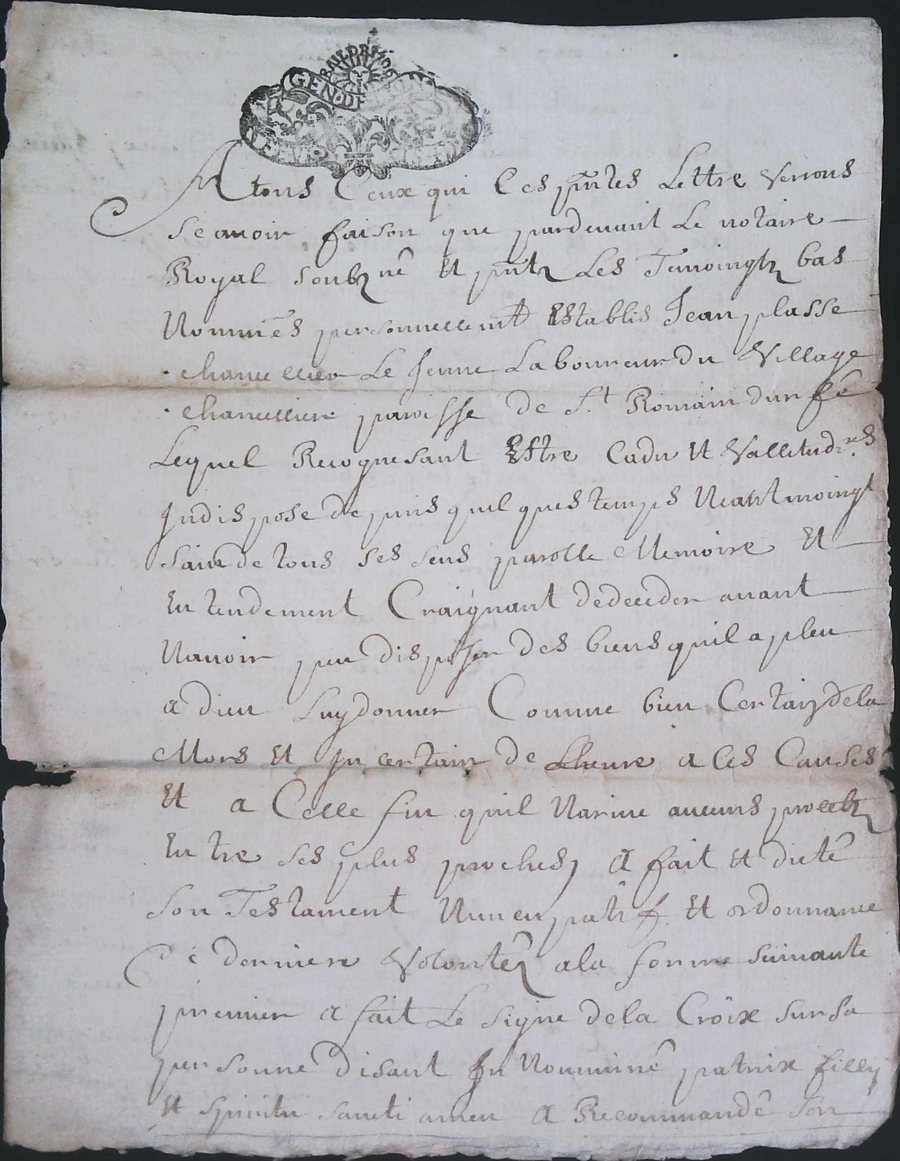 GEN. DE
A tous Ceux qui Ces pntes Lettre verrons
Scavoir faison que pardevant Le notaire
Royal soubzne Et pntz Les Temoingtz bas
Nommes personnellemt Establis Jean plasse
chancellier Le Jeune Laboureur du Village
chancellier paroisse de St Romain durfé
Lequel Recognesant Estre Cadu Et Valletudres
Indispose depuis quelques temps Neantmoingt
Saine de tous ses sens parolle Memoire Et
Entendement Craignant dedeceder avant
Navoir peu disposer des biens quil a pleu
a dieu Luy donner Comme bien Certain dela
Mors Et Incertain de Lheure a Ces Causes
Et a Celle fin quil Narive aucuns procetz
Entre ses plus proches, A fait Et dicté
Son Testament Nuncupatif Et ordonnance
de derniere Volontéz ala forme suivante
premier a fait Le signe dela Croix sur sa
personne disant In Nomminé patrix filly
Et spiritu sancti amen a Recommandé son